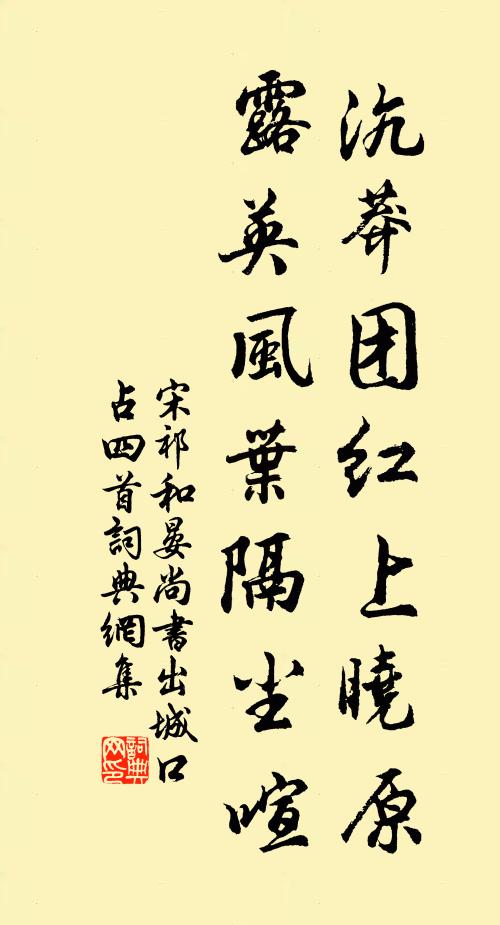 沆莽团红上曉原
露英風葉隔尘喧
宋祁和晏尚書出城口
占四首詞典網集
詞典
网印